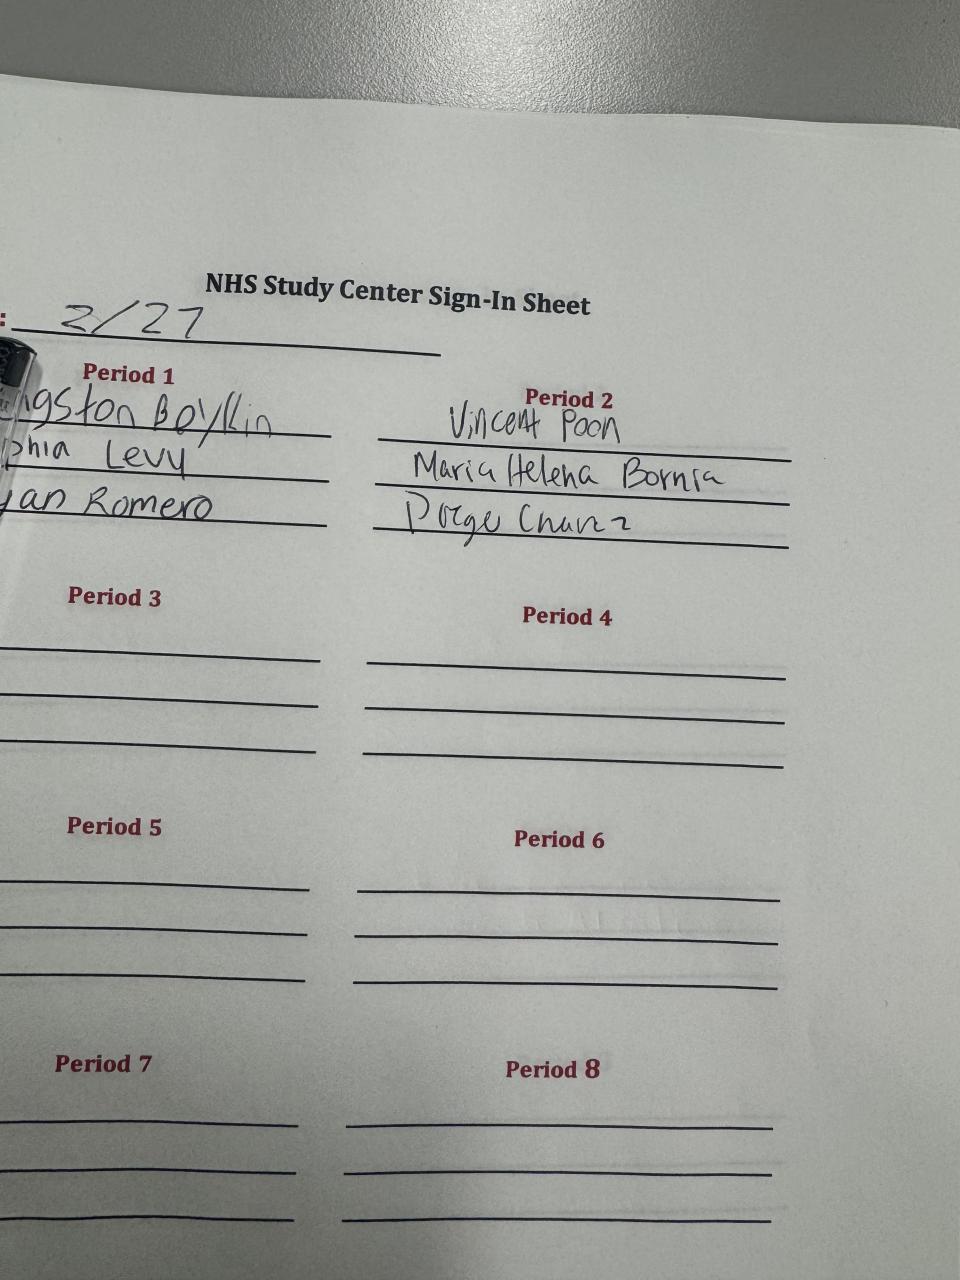 NHS Study Center Sign-In Sheet
: 2/27
Period 1
ngston Boykin
phia Levy
yan Romero
Period 2
Vincent Poon
Maria Helena Bornia
Chavez
Period 3
Period 4
Period 5
Period 6
Period 7
Period 8